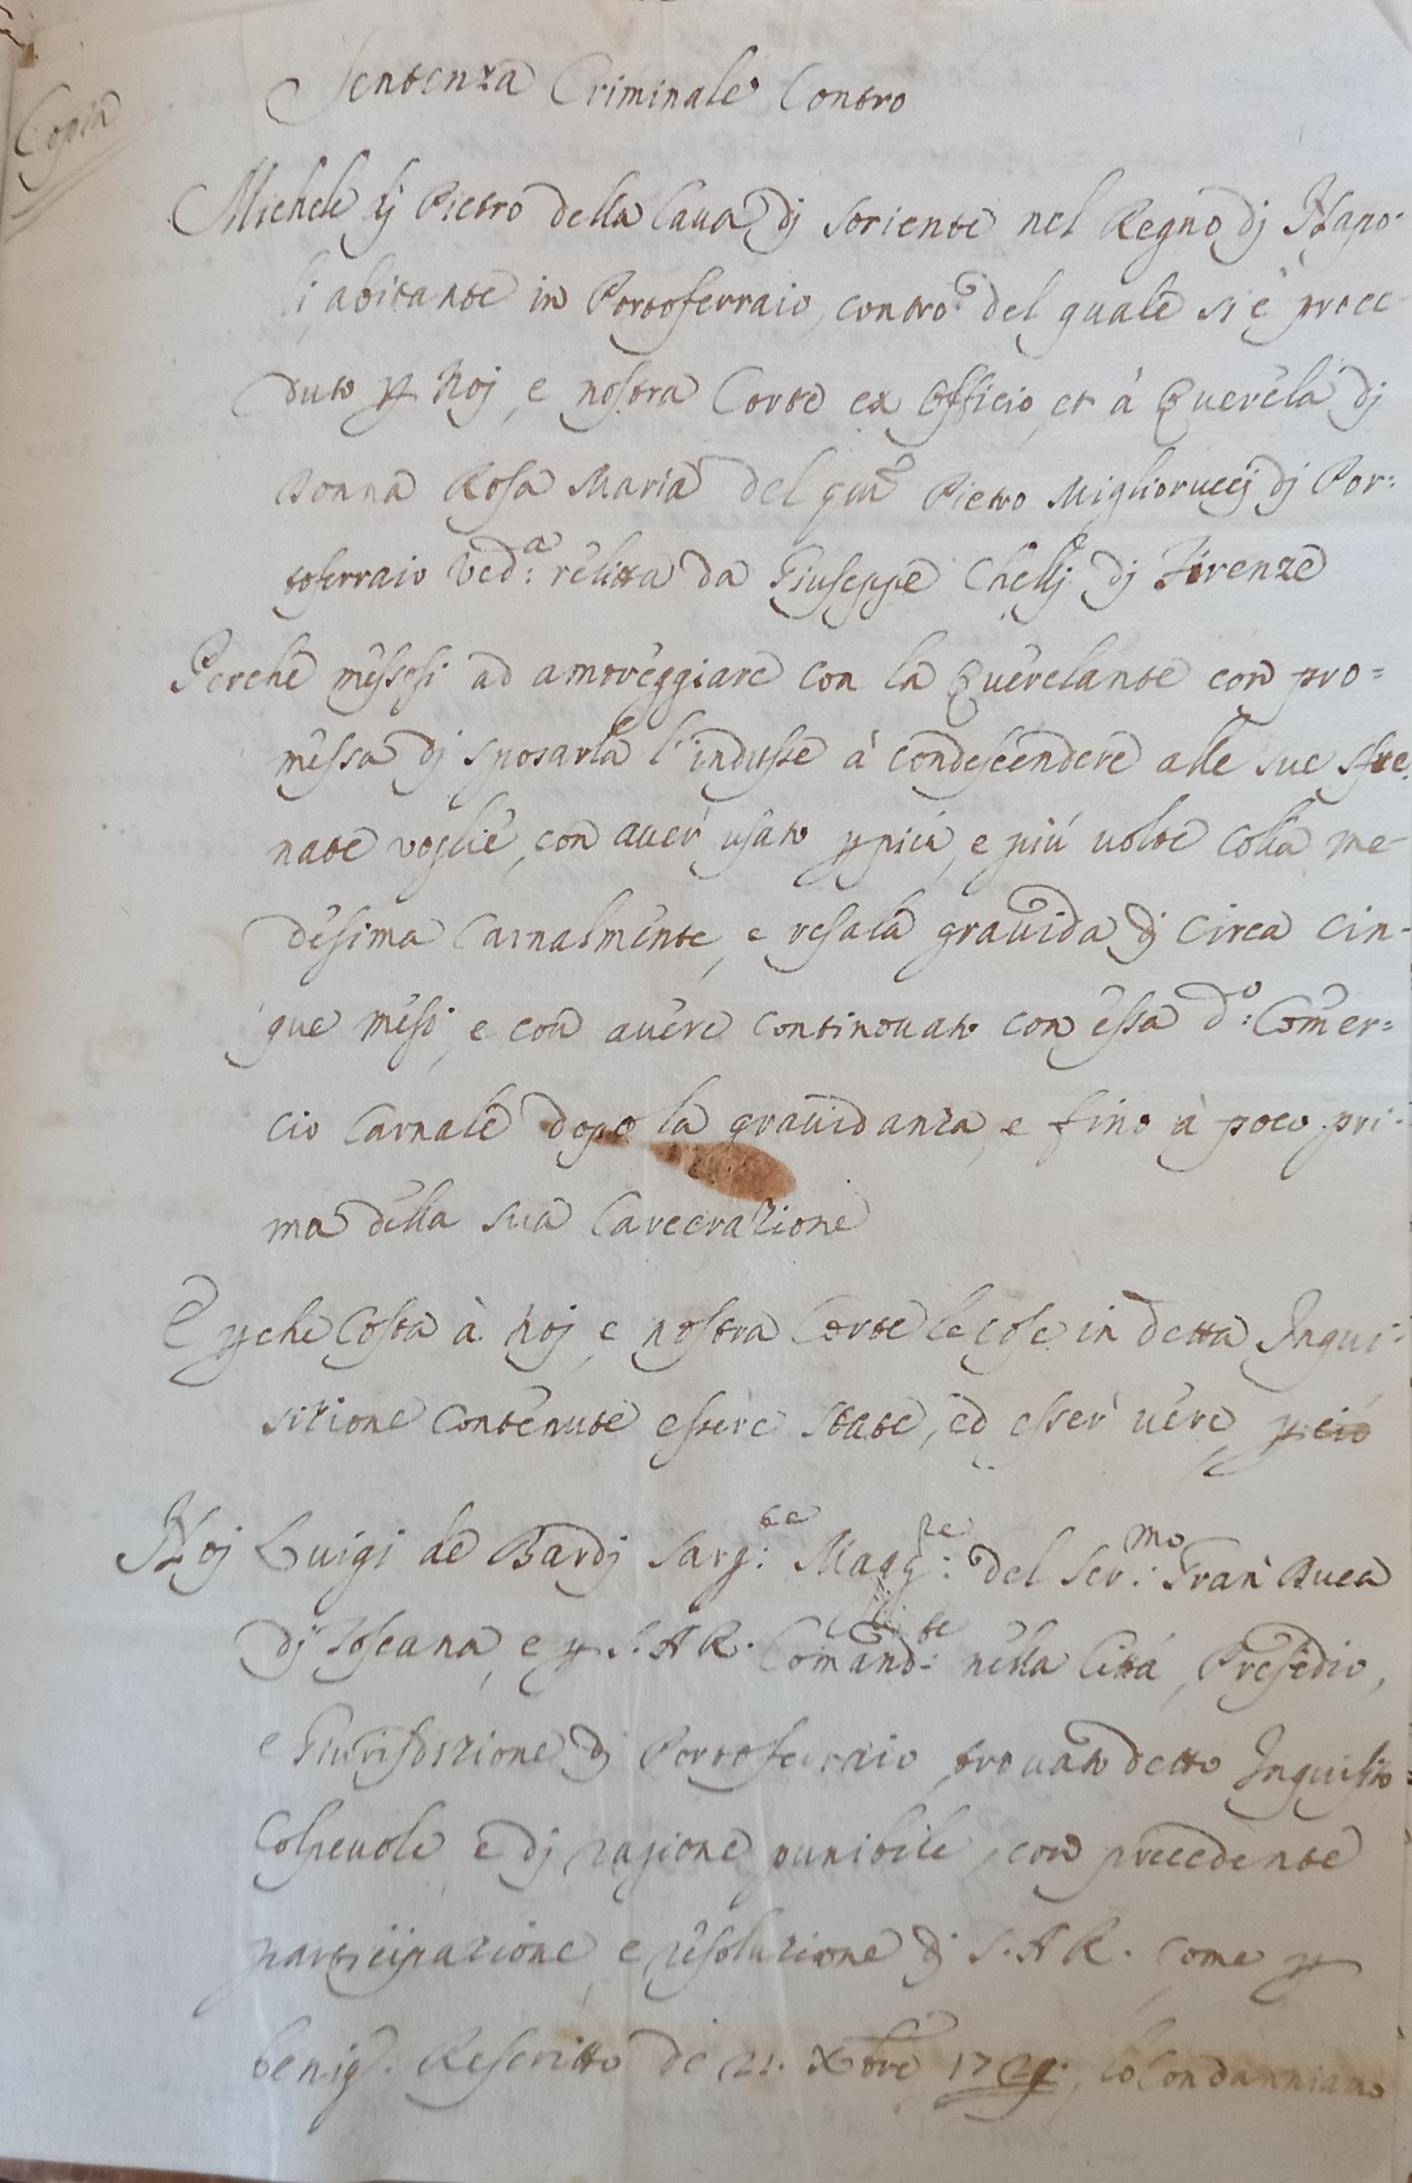 Copia
Sentenza Criminale Contro
Michele dj Pietro della Caua dj Soriente nel Regno dj Napo-
li abitante in Portoferraio, contro del quale si è proce-
duto p Noj, e nostra Corte ex Officio, et à Querela dj
Donna Rosa Maria del qm Pietro Miglioruccj dj Por:
toferraio Ved:a relitta da Giuseppe Chellj dj Firenze
Perche messosi ad amoreggiare con la Querelante con pro=
messa dj sposarla l'indusse à condescendere alle sue sfre
nate voglie, con auer usato p più, e più uolte colla me-
desima Carnalmente, e resala grauida dj circa cin-
que mesi, e con auere continouato con essa d:o Comer=
cio Carnale dopo la grauidanza, e fino à poco pri-
ma della sua Carcerazione
E pche Costa à Noj, e nostra Corte le cose in detta Inqui-
sizione contenute essere state, ed esser uere, p ciò
Noj Luigi de Bardj Sarg:te Magg:re del Ser:mo Gran Duca
dj Toscana, e p S. A R. Comand:te nella Città, Presidio,
e Giurisdizione dj Portoferraio, trouato detto Inquisito
Colpeuole e dj ragione punibile, con precedente
participazione, e resoluzione dj S. A R. come p
benig. Rescritto de 21. Xbre 1724. lo Condanniamo